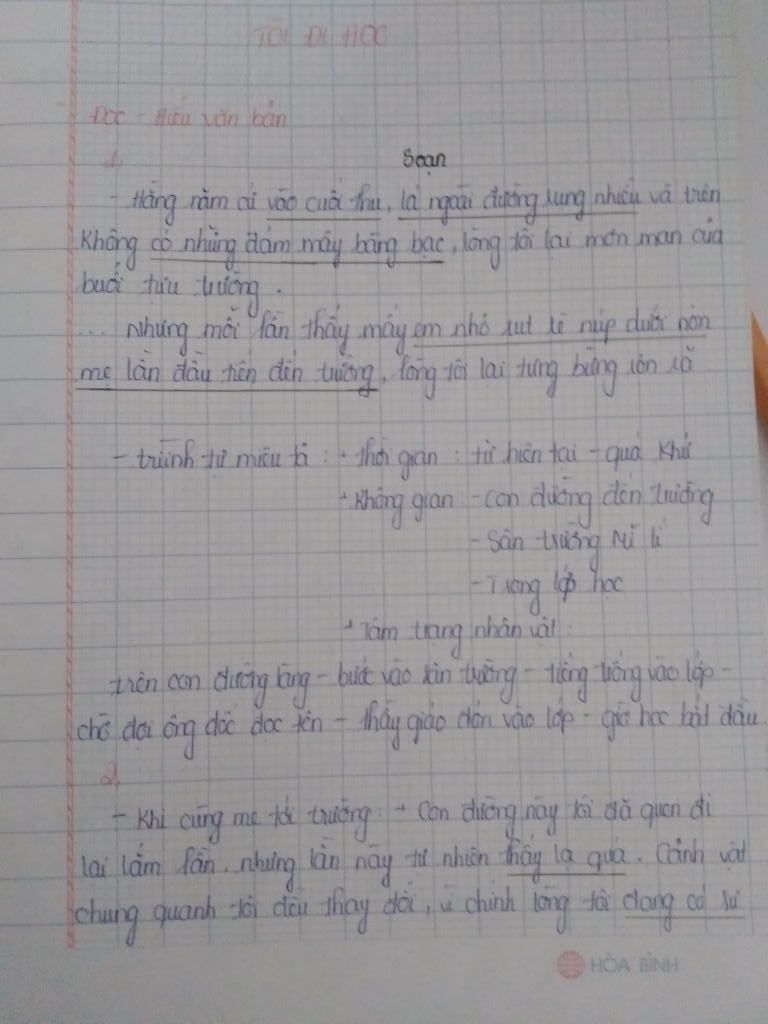 TÔI ĐI HỌC
Đọc - Hiểu văn bản
1.
Soạn
- Hằng năm cứ vào cuối thu, lá ngoài đường rụng nhiều và trên
không có những đám mây bàng bạc, lòng tôi lại mơn man của
buổi tựu trường.
... Nhưng mỗi lần thấy mấy em nhỏ rụt rè núp dưới nón
mẹ lần đầu tiên đến trường, lòng tôi lại tưng bừng rộn rã
- trình tự miêu tả : + thời gian : từ hiện tại - quá khứ
+ không gian - con đường đến trường
- Sân trường Mĩ lí
- Trong lớp học
+ Tâm trạng nhân vật
trên con đường làng - bước vào sân trường - tiếng trống vào lớp -
chờ đợi ông đốc đọc tên - thầy giáo đón vào lớp - giờ học bắt đầu
2.
- Khi cùng mẹ tới trường : + Con đường này tôi đã quen đi
lại lắm lần, nhưng lần này tự nhiên thấy lạ quá. Cảnh vật
chung quanh tôi đều thay đổi, vì chính lòng tôi đang có sự
HÒA BÌNH